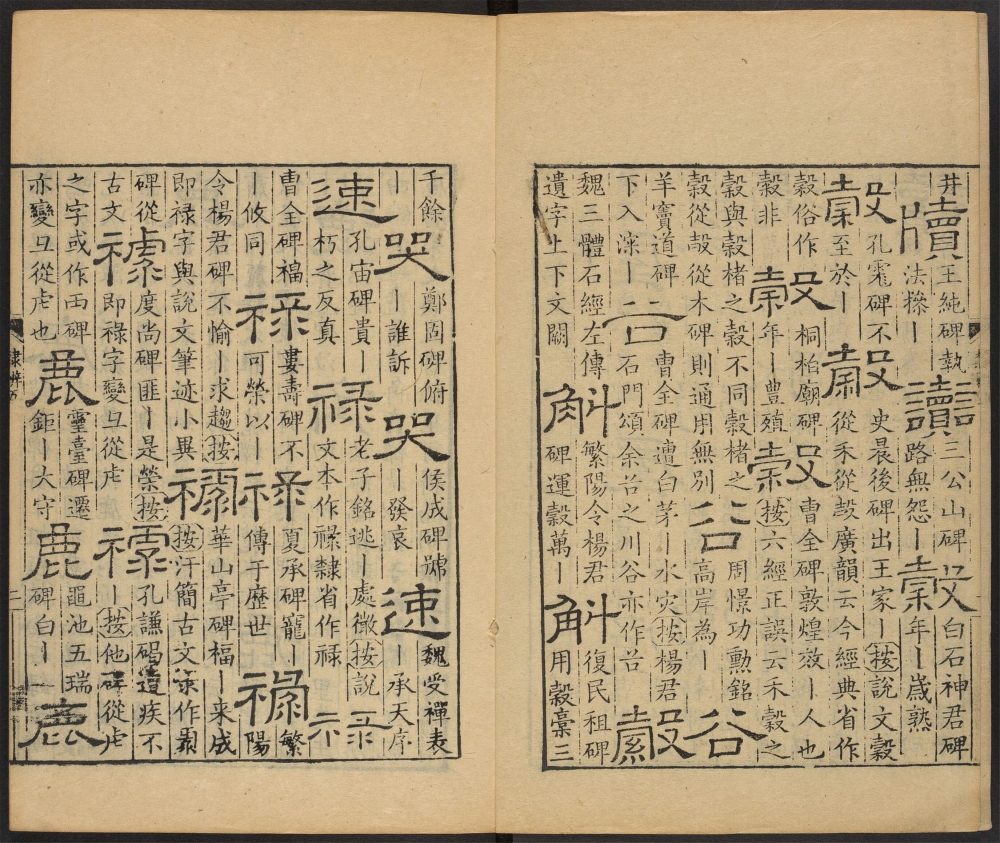 井牘王純碑執法掾丨讟三公山碑路無怨丨穀白石神君碑年丨歲熟
穀孔龢碑不至於丨穀史晨後碑出王家丨按說文穀從禾從㱿廣韻云今經典省作
穀俗作穀非穀桐柏廟碑年丨豐殖穀曹全碑敦煌效丨人也按六經正誤云禾穀之
穀與榖楮之榖不同榖楮之榖從㱿從木碑則通用無別谷周憬功勳銘高岸為丨谷
羊竇道碑下入㴱丨谷曹全碑遭白茅丨水灾按楊君石門頌余谷之川谷亦作谷穀
魏三體石經左傳遺字上下文闕斛繁陽令楊君碑運穀萬丨斛復民租碑用穀稾三
千餘丨哭鄭固碑俯丨誰訴哭侯成碑號丨發哀速魏受禪表丨承天序
速孔宙碑貴丨朽之反真祿老子銘逃丨處微按說文本作祿隸省作禄祿
曹全碑福丨攸同祿婁壽碑不可榮以丨祿夏承碑寵丨傳于歷世祿繁陽
令楊君碑不愉丨求趨按即禄字與說文筆迹小異華山亭碑福丨来成按汗簡古文禄作
碑從古文度尚碑匪丨是榮按即禄字變㠯從虍孔謙碣遭疾不丨按他碑從虍
之字或作覀碑亦變㠯從虍也鹿靈臺碑遷鉅丨大守鹿黽池五瑞碑白丨鹿